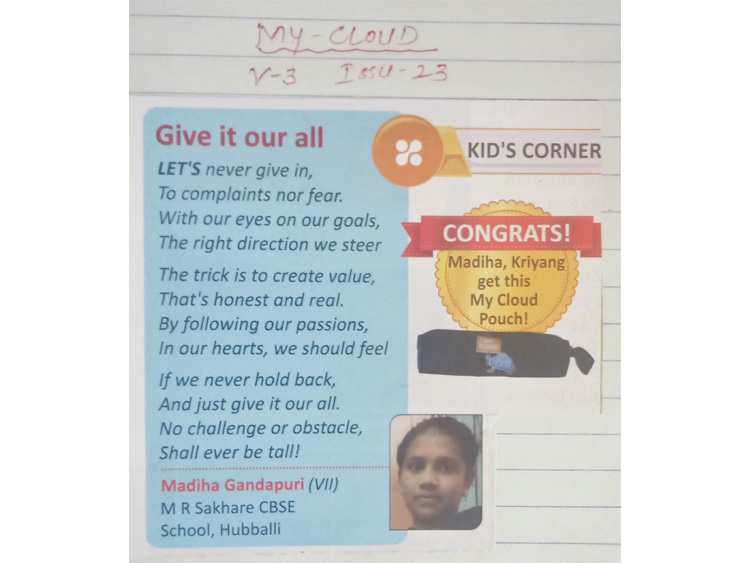 MY-CLOUD
V-3 Issu-23
Give it our all
LET'S never give in,
To complaints nor fear.
With our eyes on our goals,
The right direction we steer
The trick is to create value,
That's honest and real.
By following our passions,
In our hearts, we should feel
If we never hold back,
And just give it our all.
No challenge or obstacle,
Shall ever be tall!
Madiha Gandapuri (VII)
M R Sakhare CBSE
School, Hubballi
KID'S CORNER
CONGRATS!
Madiha, Kriyang
get this
My Cloud
Pouch!